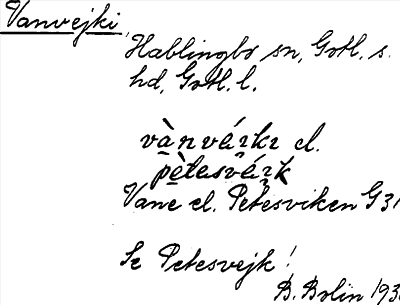 Vanvejki,
Hablingbo sn, Gotl. s.
hd, Gotl. l.
vànváıkı el.
pètesváık
Vane el. Petesviken G31
Se Petesvejk!
B. Bolin 193